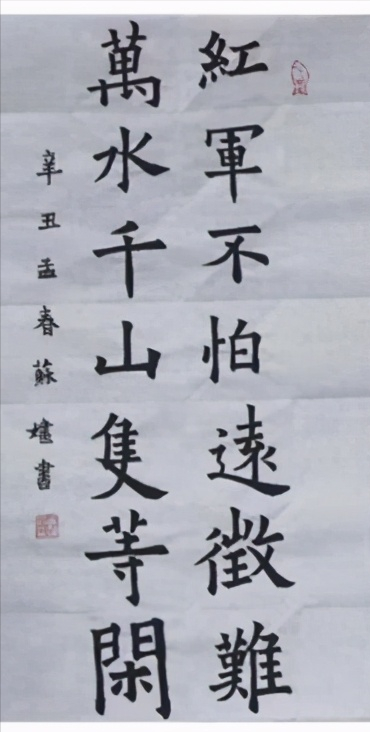 紅軍不怕遠徵難
萬水千山隻等閑
辛丑孟春蘇嬑書